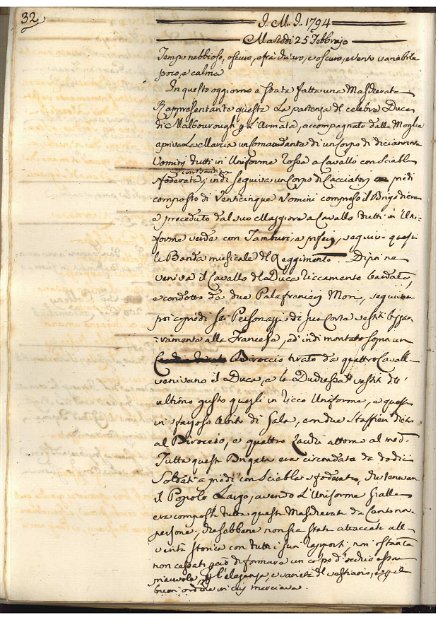 32
I. M. I. 1794
Martedì 25 Febbrajo
Tempo nebbioso, oscuro, e vento variabile
poco, e calma
In questo oggiorno è stata fatta una Mascherata
Rappresentante questa La partenza del celebre Duca
di Malbourough p l'Armata, accompagnato dalla Moglie
apriva la Marcia un Comandante di un Corpo di diciannove
Uomini tutti in Uniforme Rossa a Cavallo con Sciable
sfoderate; indi seguiva un Corpo di Cacciatori a piedi
composto di Venticinque Uomini composto il
e preceduto dal suo Maggiore a Cavallo tutti in Uni
forme verde con Tamburi, e pifari, seguiva questi
la Banda musicale del Reggimento Dipoi ne
veniva il Cavallo del Duca riccamente bardato,
e condotto da due Palafrenieri Mori, seguita
poi a piedi sei Personaggi di sua Corte vestiti
alla Francese, ed indi montato sopra un
Biroccio tirato da quattro Cavalli
venivano il Duca, e la Duchessa vestiti di
ultimo gusto quegli in ricco Uniforme, e questa
in sfarzoso Abito di Gala, con due Staffieri diet
al Biroccio, e quattro attorno al med
Tutta questa Brigata era circondata da dodici
Soldati a piedi con Sciable sfoderate,
il Popolo Largo, avendo l'Uniforme Gialla
era composta tutta questa Mascherata da Cento
persone, che sebbene non sia stata attaccata alla
verità Storica con tutti i suoi rapporti, non ostante
non cessato però di formare un corpo d'
p l'eleganza, e varietà del vestiario, e pel
buon ordine in cui marciava.